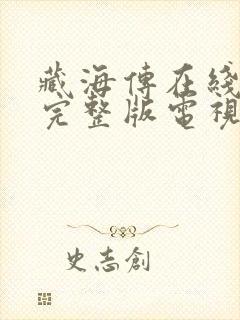 藏海傳在綫
完整版電視
史志創